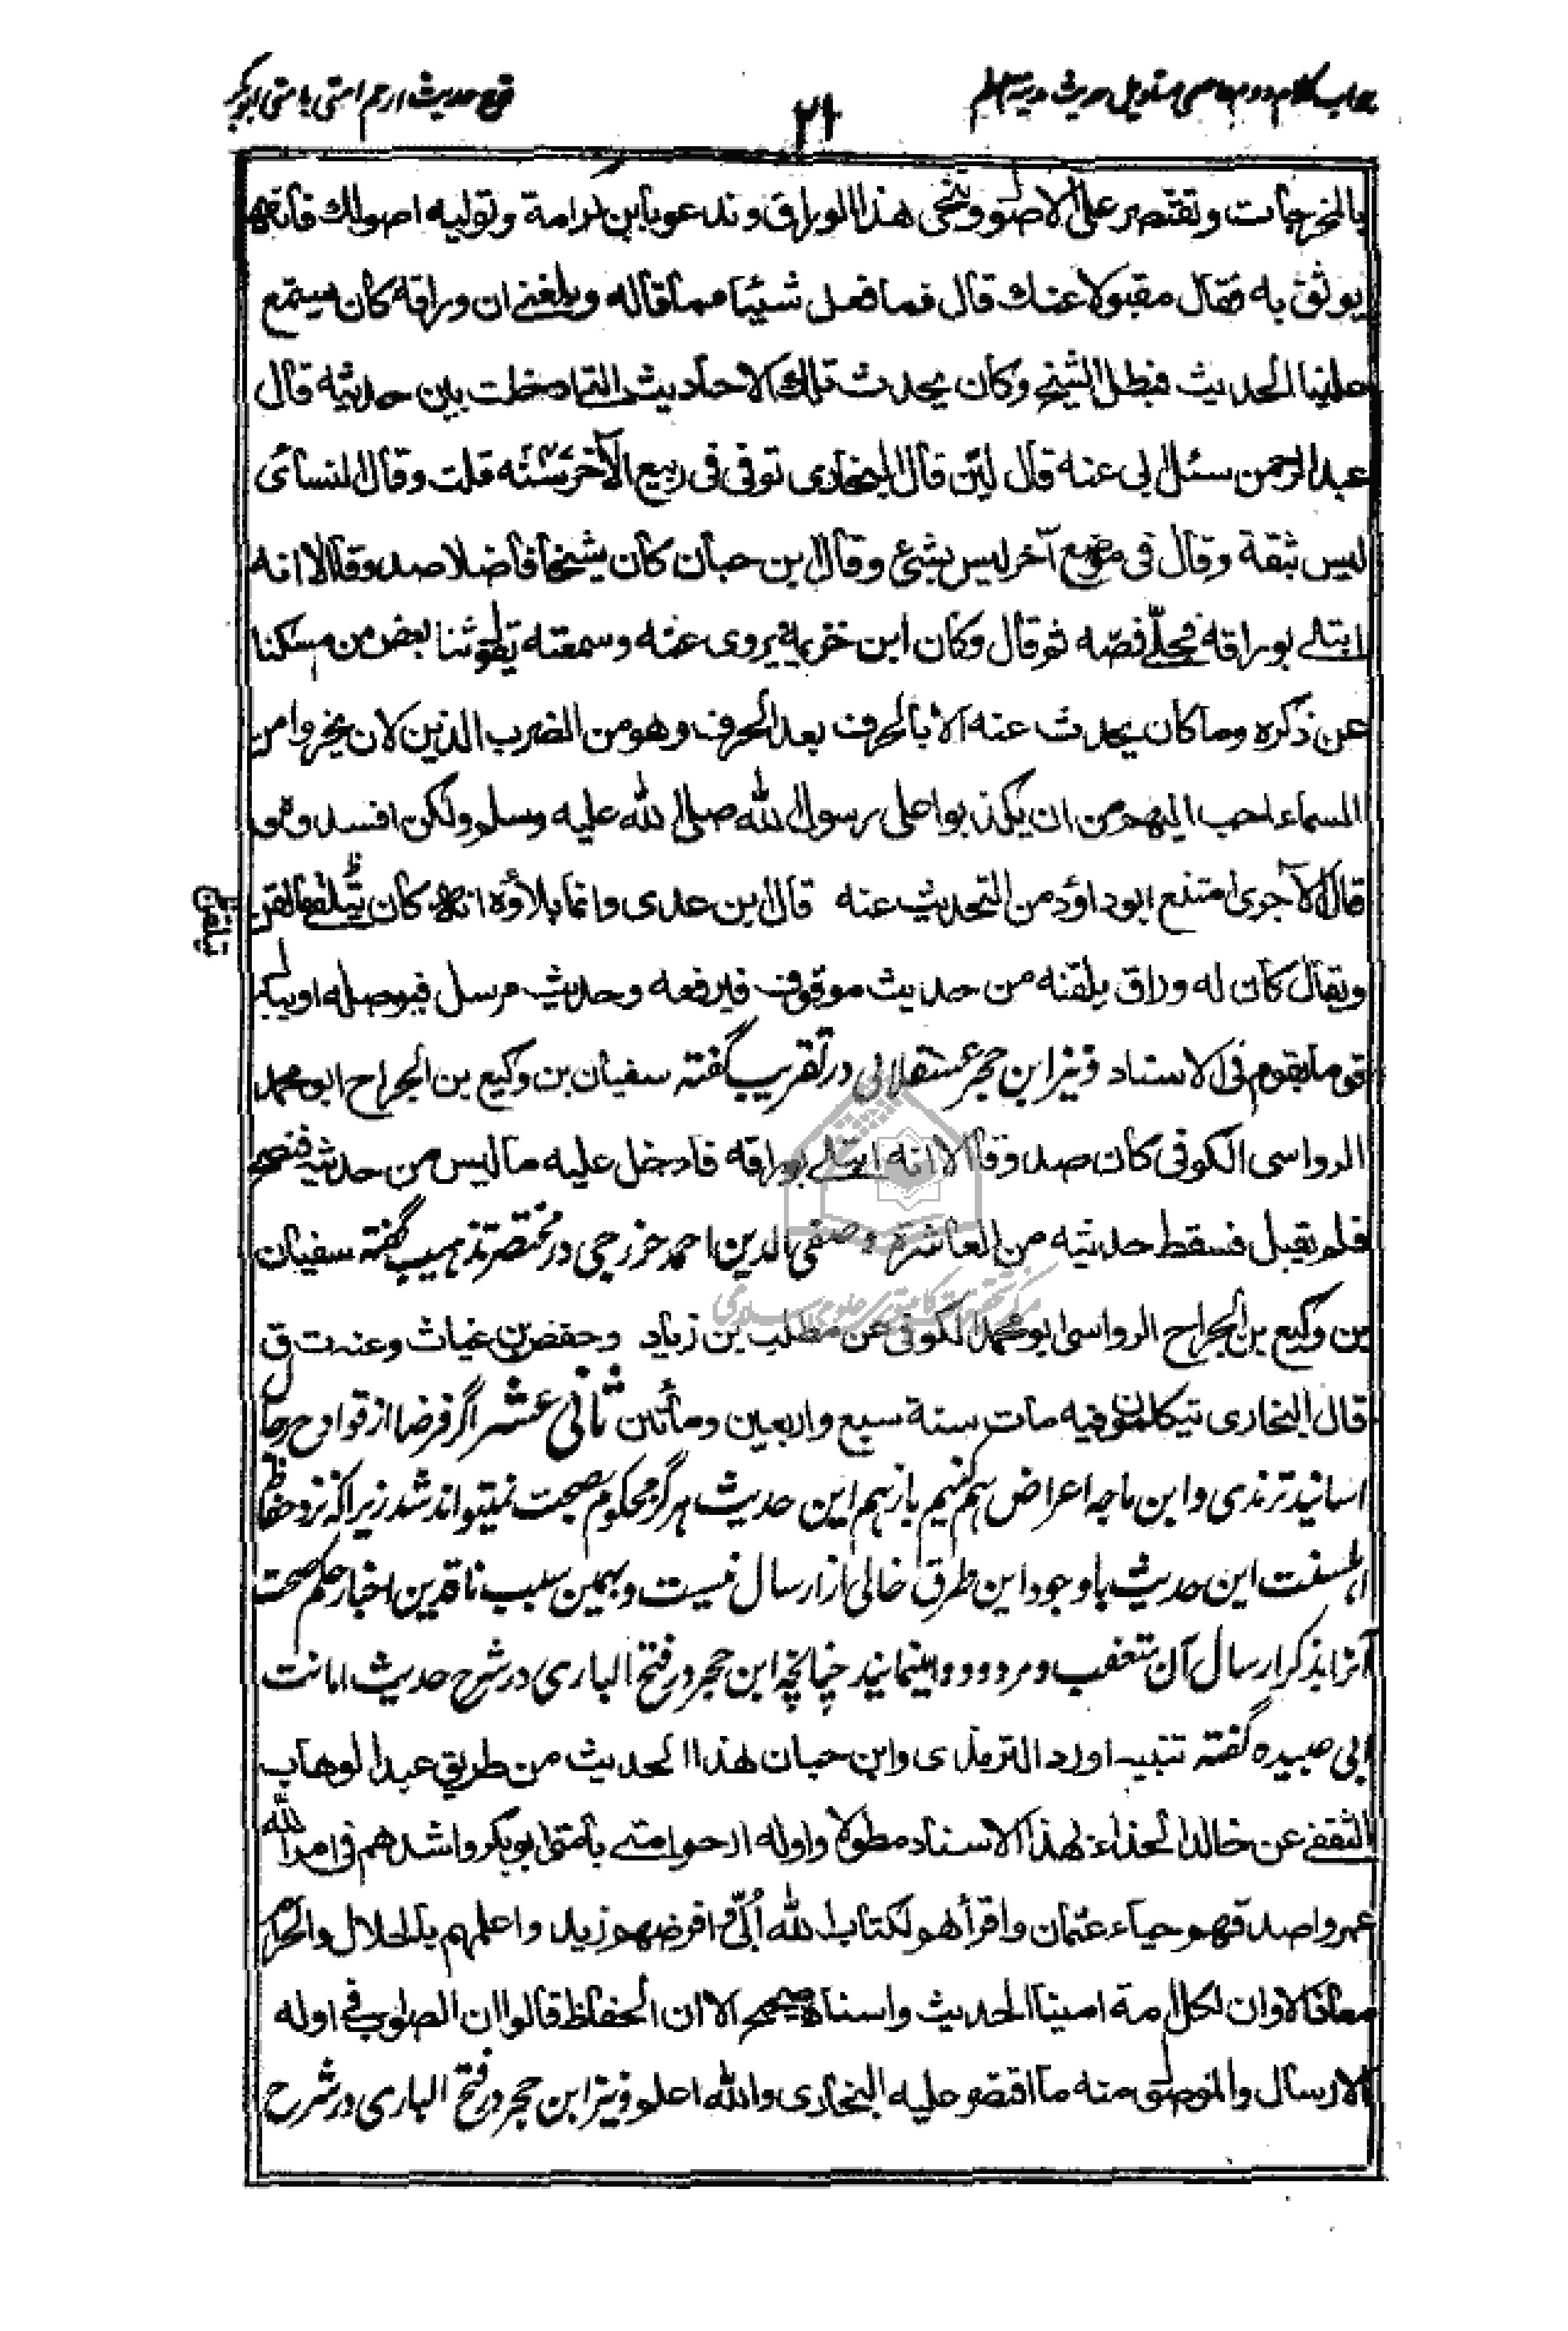 جواب کلام دوم عاصمی متاویل حدیث مدینة العلم
۲۱
قدح حدیث ارحم امتی بامتی ابوبکر
بالمخرجات وتقتصر على الاصول وتنحى هذا الوراق وندعو بابن كرامة وتوليه اصولك فانه
يوثق به فقال مقبولا عنك قال فما فعل شيئا مما قاله وبلغني ان وراقه كان يستمع
علينا الحديث فبطل الشيخ وكان يحدث تلك الاحاديث التي ادخلت بين حديثه قال
عبد الرحمن سئل ابي عنه قال لين قال البخاري توفي في ربيع الآخر سنة قلت وقال النسائي
ليس ثقة وقال في موضع آخر ليس بشئ وقال ابن حبان كان شيخا فاضلا صدوقا الا انه
ابتلى بوراقه فحكى قصته ثم قال وكان ابن خزيمة يروى عنه وسمعته يقول ثنا بعض من مسكنا
عن ذكره وما كان يحدث عنه الا بالحرف بعد الحرف وهو من الضرب الذين لان يخروا من
السماء احب اليهم من ان يكذبوا على رسول الله صلى الله عليه وسلم ولكن افسدوه
قال الآجرى امتنع ابو داؤد من التحديث عنه قال ابن عدى وانما بلاؤه انه كان يتلقن ما لقن
يتلقن
ويقال كان له وراق يلقنه من حديث موقوف فيرفعه وحديث مرسل فيوصله او يبدل
قوما بقوم فى الاسناد ونیز ابن حجر عسقلانی در تقریب گفته سفيان بن وكيع بن الجراح ابو محمد
الرواسى الكوفى كان صدوقا الا انه ابتلى بوراقه فادخل عليه ما ليس من حديثه فنصح
فلم يقبل فسقط حديثه من العاشرة وصفی الدین احمد خزرجی در مختصر تذهیب گفته سفيان
بن وكيع بن الجراح الرواسى ابو محمد الكوفى عن مطلب بن زياد وحفص بن غياث وعنه ت ق
قال البخارى يتكلمون فيه مات سنة سبع واربعين ومأتين ثانی عشر اگر فرضا از قوادح رجال
اسانید ترمذی وابن ماجه اعراض هم کنیم باز هم این حدیث هرگز محکوم بصحت نمیتواند شد زیرا که نزد حفاظ
اهلسنت این حدیث با وجود این طرق خالی از ارسال نیست و بهمین سبب ناقدین اخبار حکم صحت
آنرا بذکر ارسال آن متعقب و مردود وا مینمایند چنانچه ابن حجر در فتح الباری در شرح حدیث امانت
ابی عبیده گفته تنبيه اورد الترمذى وابن حبان هذا الحديث من طريق عبد الوهاب
الثقفى عن خالد الحذاء بهذا الاسناد مطولا واوله ارحم امتى بامتى ابو بكر واشدهم فى امر الله
عمر واصدقهم حياء عثمان واقرأهم لكتاب الله اُبَىّ وافرضهم زيد واعلمهم بالحلال والحرام
معاذ الا وان لكل امة امينا الحديث واسناده صحيح الا ان الحفاظ قالوا ان الصواب فى اوله
الارسال والموصول منه ما اقتصر عليه البخارى والله اعلم ونیز ابن حجر در فتح الباری در شرح